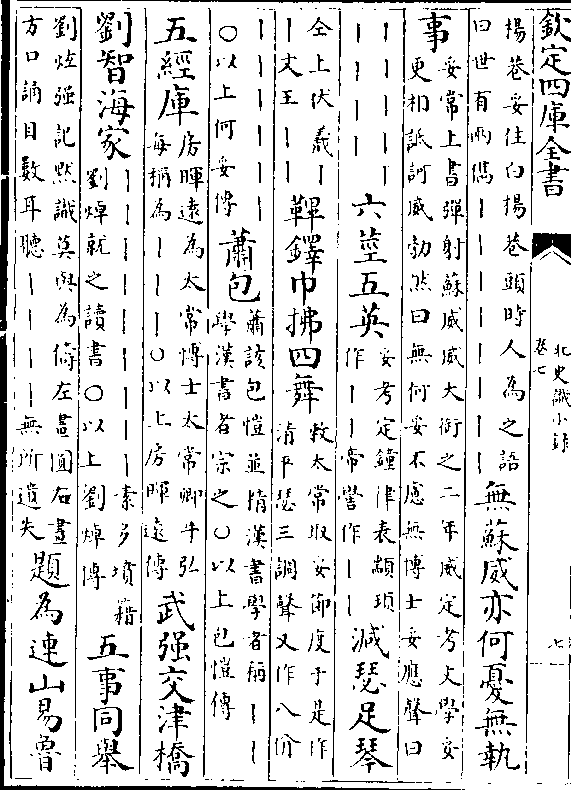 欽定四庫全書
北史識小錄
卷七
七
楊巷妥住白楊巷頭時人為之語
曰世有兩儁｜｜｜｜｜｜｜｜
無蘇威亦何憂無執
事
妥常上書彈射蘇威威大銜之二年威定考文學妥
更相詆訶威勃然曰無何妥不慮無博士妥應聲曰
｜｜｜｜｜
｜｜｜｜
六莖五英
妥考定鐘律表顓頊
作｜｜帝嚳作｜｜
減瑟足琴
仝上伏羲｜
｜文王｜｜
鞞鐸巾拂四舞
敕太常取妥節度于是作
清平瑟三調聲又作八佾
｜｜｜｜｜｜
○以上何妥傳
蕭包
蕭該包愷並精漢書學者稱｜｜
學漢書者宗之○以上包愷傳
五經庫
房暉遠為太常博士太常卿牛弘
每稱為｜｜｜○以上房暉遠傳
武强交津橋
劉智海家
｜｜｜｜｜｜｜｜｜素多墳籍
劉焯就之讀書○以上劉焯傳
五事同舉
劉炫强記默識莫與為儔左畫圓右畫
方口誦目數耳聽｜｜｜｜無所遺失
題為連山易魯